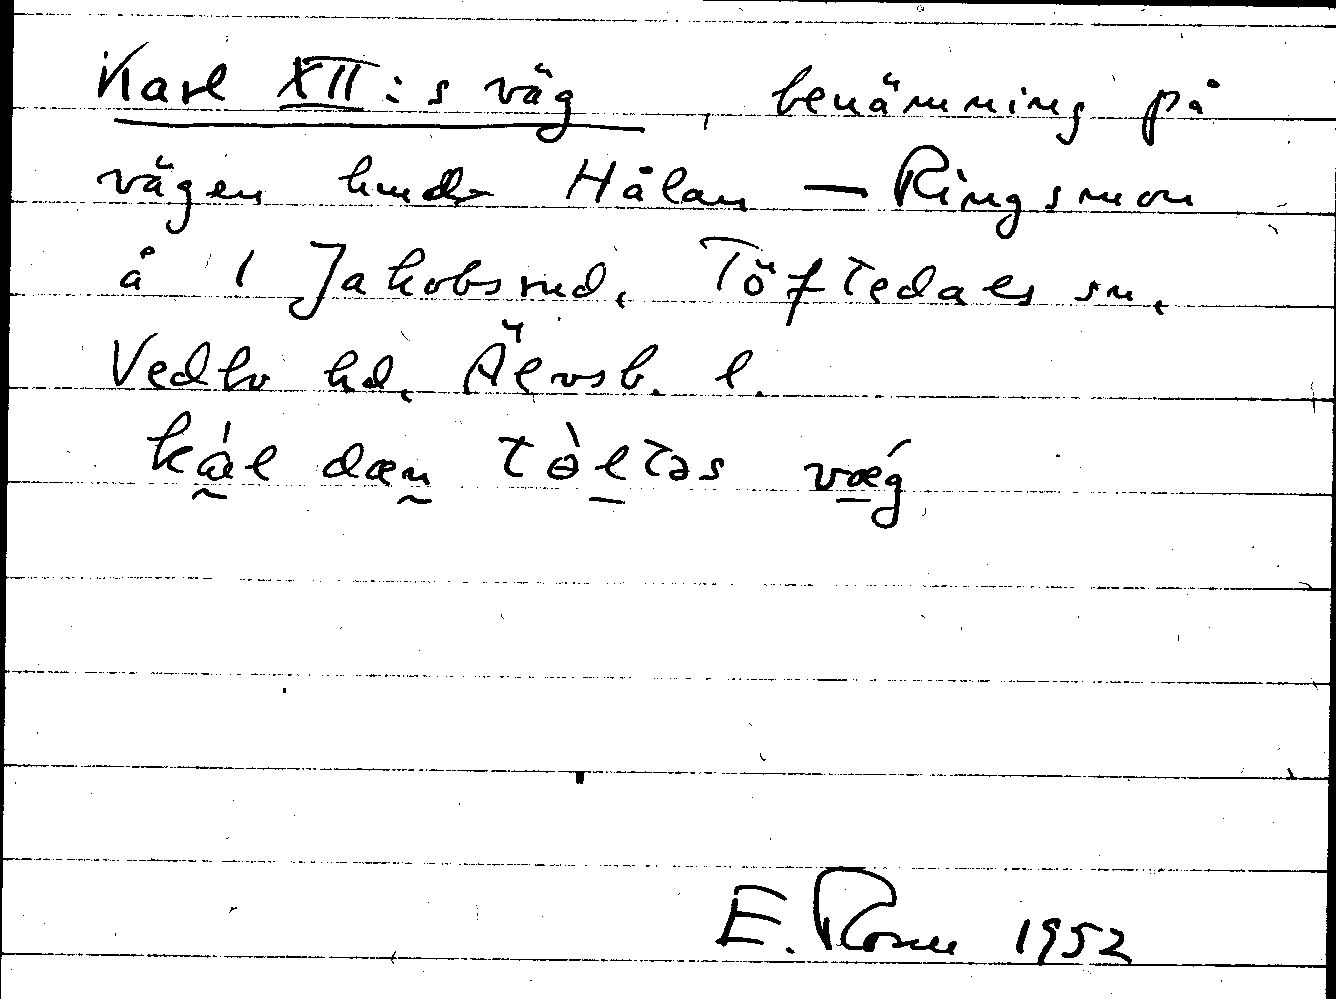 Karl XII:s väg, benämning på
vägen Hålan — Ringsmon
å 1 Jakobsrud, Töftedals sn,
Vedbo hd, Älvsb. l.
kál dæn tὸltəs vǽg
E. Rosen 1952